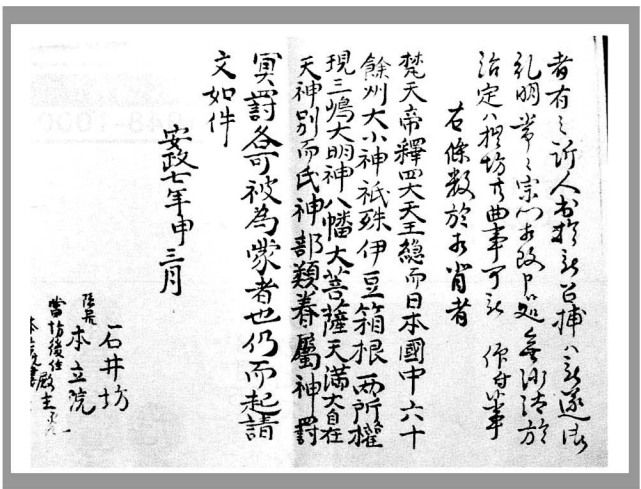 者有之訴人出於被召捕ハ被遂御
糺明常々宗門相改申処無沙汰於
治定ハ拙坊共曲事可被 仰付事
右條数於相背者
梵天帝釋四大天王総而日本國中六十
餘州大小神祇殊伊豆箱根両所權
現三嶋大明神八幡大菩薩天満大自在
天神別而氏神部類眷屬神罰
冥罰各可被為蒙者也仍而起請
文如件
安政七年申三月
石井坊
隠居 本立院
當坊後住 殿主